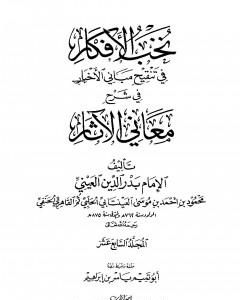 نخب الأفكار
في تنقيح مباني الأخبار
في شرح
معاني الآثار
تأليف
الإمام بدر الدين العيني
محمود بن أحمد بن موسى العينتابي الحلبي ثم القاهري الحنفي
المولود سنة ٧٦٢ هـ والمتوفى سنة ٨٥٥ هـ
رحمه الله تعالى
المجلد السابع عشر
أبو تميم ياسر بن إبراهيم